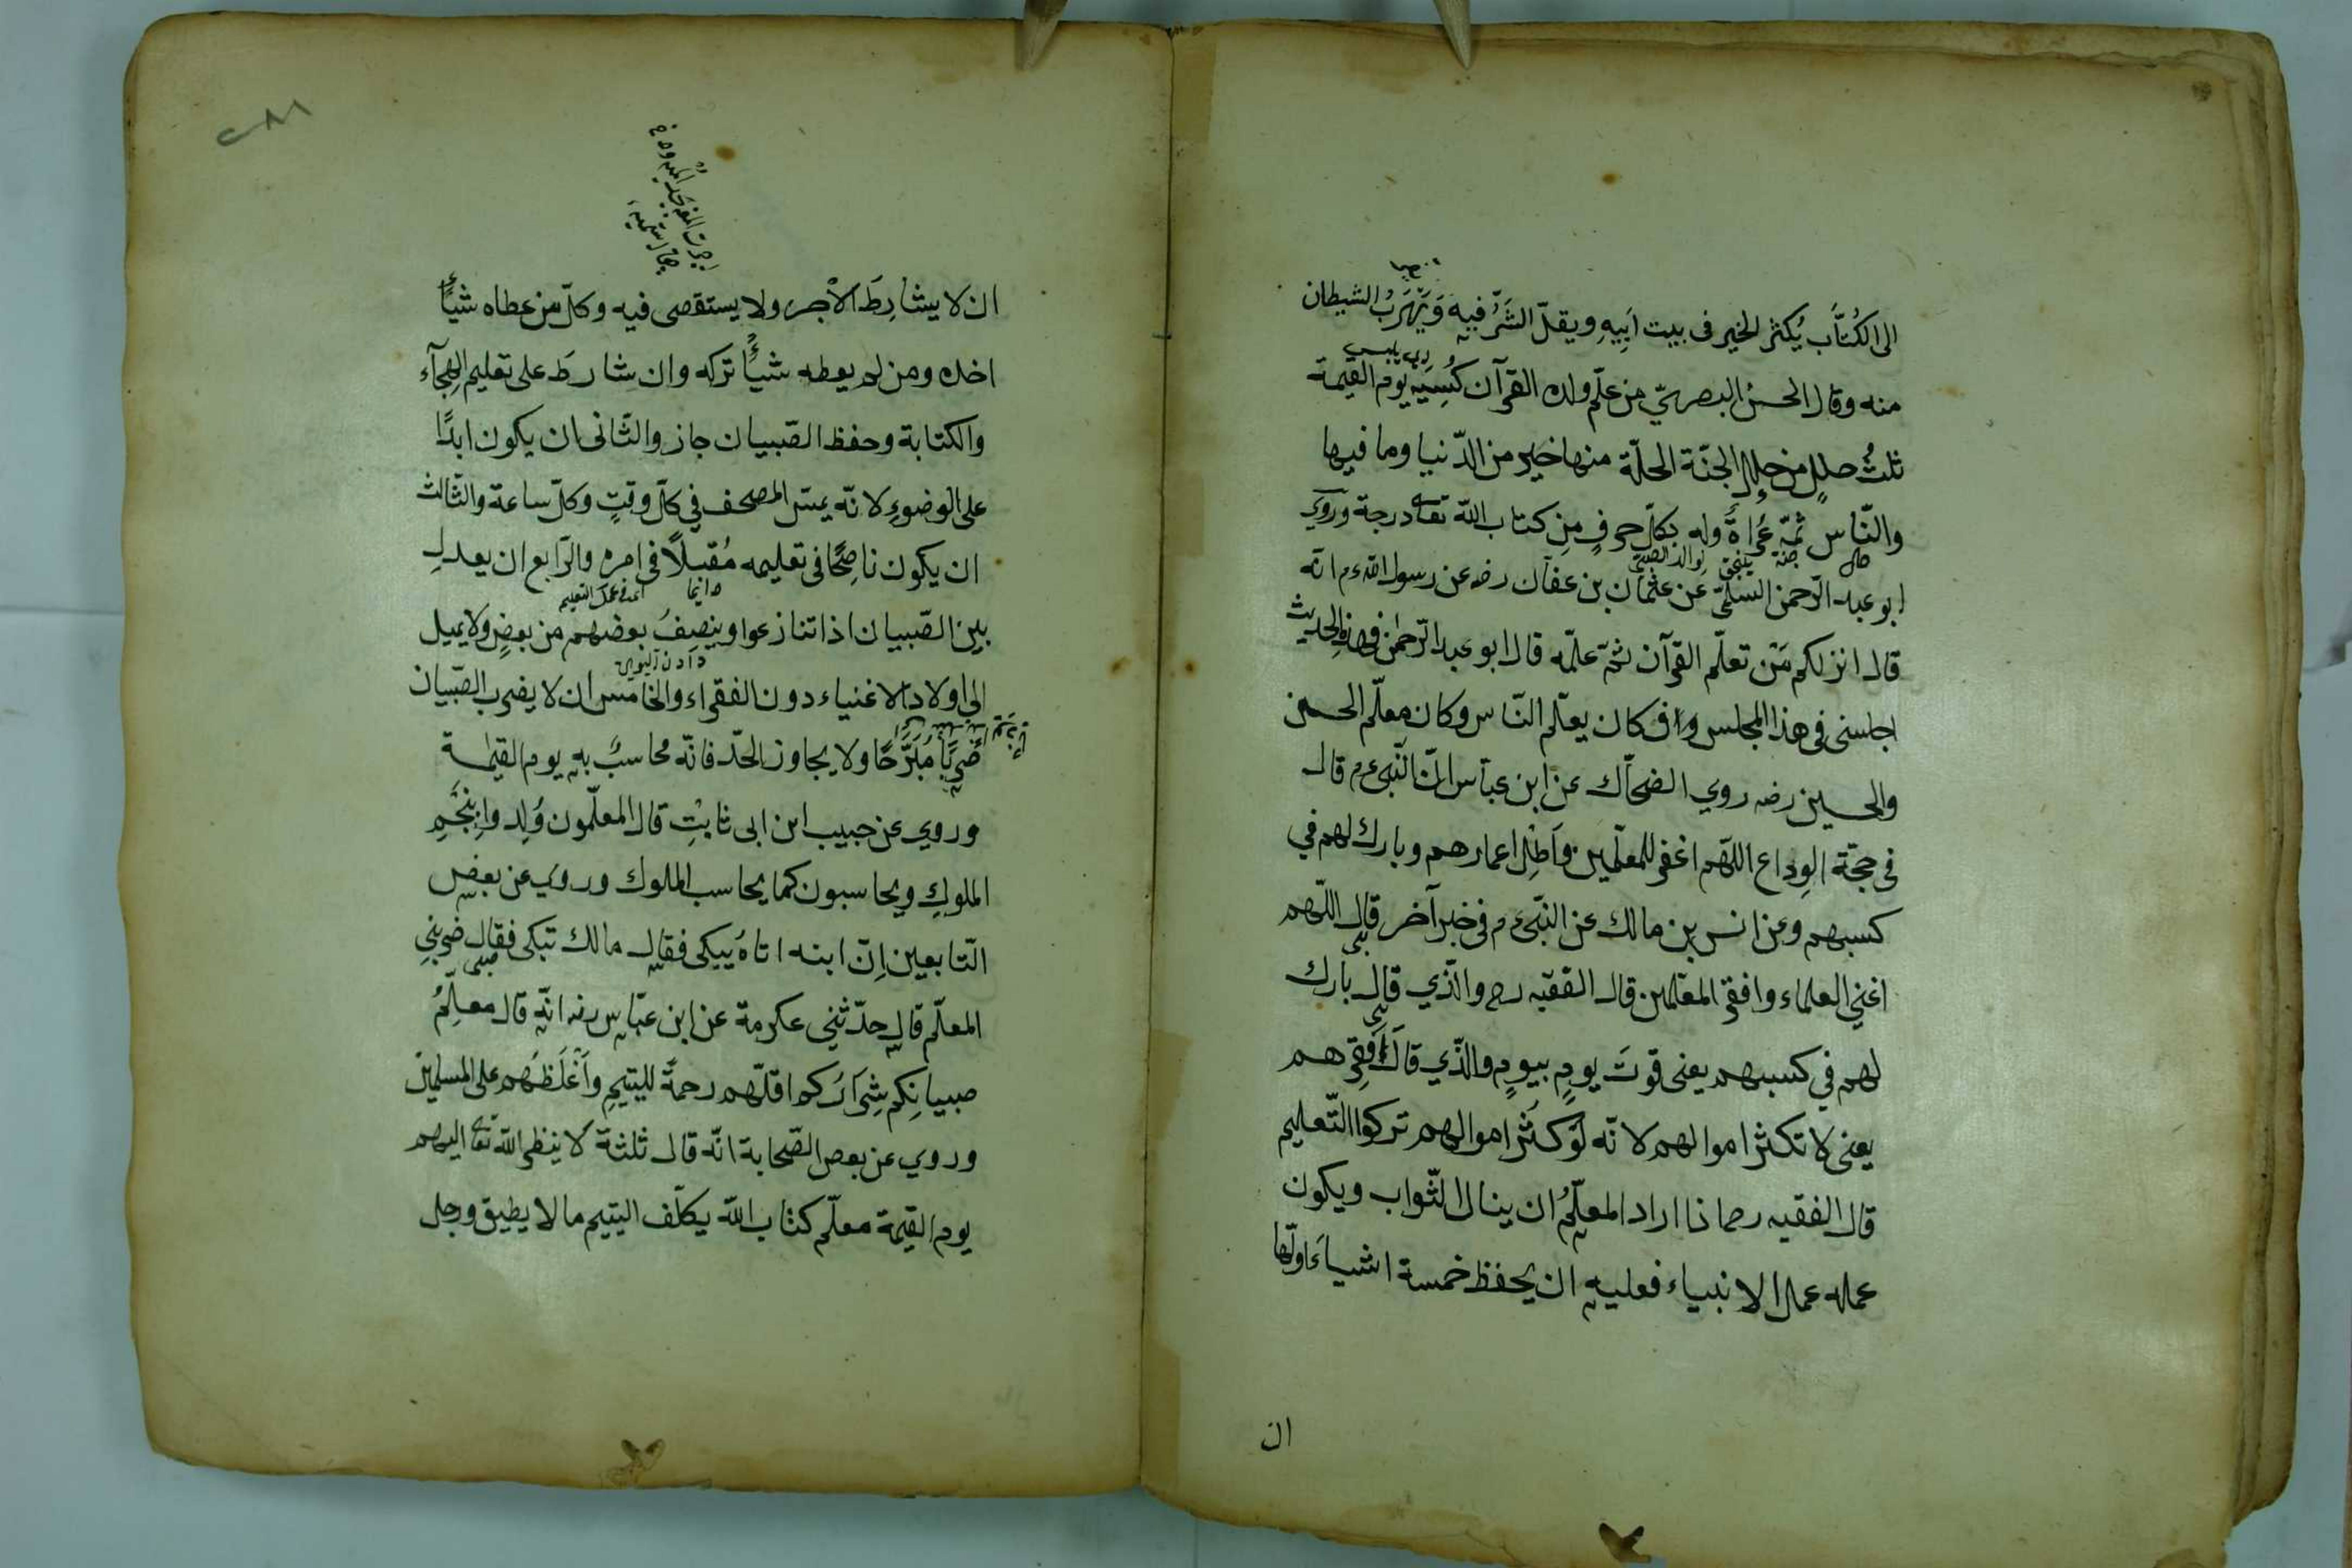 الى الكُتَّاب يُكثر الخير فى بيت اَبِيهِ ويقلّ الشَّرُّ فيه وَيَهْرَبُ الشيطان
منه وقال الحسنُ البصرىّ من علّم ولده القرآن كُسِيَ يوم القيمة
ثلثُ حللٍ من حللِ الجنّة الحلّة منها خير من الدّنيا وما فيها
والنّاس ثمّه عُراةٌ وله بكلّ حرفٍ مِن كتاب اللّه تعالى درجة ورَوَي
ابو عبد الرّحمن السلمىّ عَن عثمان بن عفّان رضه عن رسول اللّه ءم انّه
قال انزلكم مَنْ تعلّم القرآن ثمّ علّمه قال ابو عبد الرّحمٰن فهذا الحديث
اجلسنى فى هذا المجلس وان كان يعلّم النّاس وكان معلّم الحسن
والحسين رضه روي الضحّاك عن ابن عبّاس انّ النّبى ءم قال
فى حجّة الوداع اللّهم اغفر للمعلّمين واَطِل اعمارهم وبارك لهم في
كسبهم وعن انس بن مالك عن النبّى ءم فى خبر آخر قال اللّهم
اغنِ العلماء وافقر المعلّمين قال الفقيه رح والّذي قال بارك
لهم في كسبهم يعنى قوتَ يومٍ بيومٍ والّذي قال اَفقِرهم
يعنى لا تكثر اموالهم لانّه لَوْ كَثُر اموالهم تركوا التّعليم
قال الفقيه رح اذا اراد المعلّمُ ان ينال الثّواب ويكون
عمله عمل الانبياء فعليهِ ان يحفظ خمسة اشياءَ اوّلها
ان
ان لا يشارِطَ الاَجر ولا يستقصى فيه وكلّ من عطاه شيأً
اخذه ومن لم يعطه شيأً تركه وان شارطَ على تعليم الهِجآء
والكتابة وحفظ الصّبيان جاز والثّانى ان يكون ابدًا
على الوضوءِ لانّه يمسّ المصحف في كلّ وقتٍ وكلّ ساعة والثّالث
ان يكون ناصِحًا فى تعليمه مُقبلًا فى امره والرّابع ان يعدلِ
دائما
اى فى عمل التعليم
بين الصّبيان اذا تنازعوا وينصِفُ بعضهم من بعضٍ ولا يميل
الى اولاد الاغنياء دون الفقراء والخامس ان لا يضرب الصّبيان
ضربًا مُبَرَّحًا ولا يجاوز الحدّ فانّه محاسبٌ بهِ يوم القيٰمةِ
وروي عن حبيب ابن ابى ثابتِ قال المعلّمون وُلِد وا بِنَجْمِ
الملوكِ ويحاسبون كما يحاسب الملوك وروي عن بعضِ
التّابعين اِنّ ابنه اتاهُ يبكى فقال مالك تبكى فقال ضربنِي
المعلّم قال حدّثنِي عكرمة عن ابن عبّاس رضه انّه قال معلّمُ
صبيانِكم شِرَارُكم اقلّهم رحمةً لليتيمِ واَغْلَظُهم على المسلمين
وروي عن بعض الصّحابة انّه قال ثلثة لا ينظر اللّه تعالى اليهم
يوم القيمة معلّم كتاب اللّه يكلّف اليتيم مالا يطيق ورجل
٢٨٨